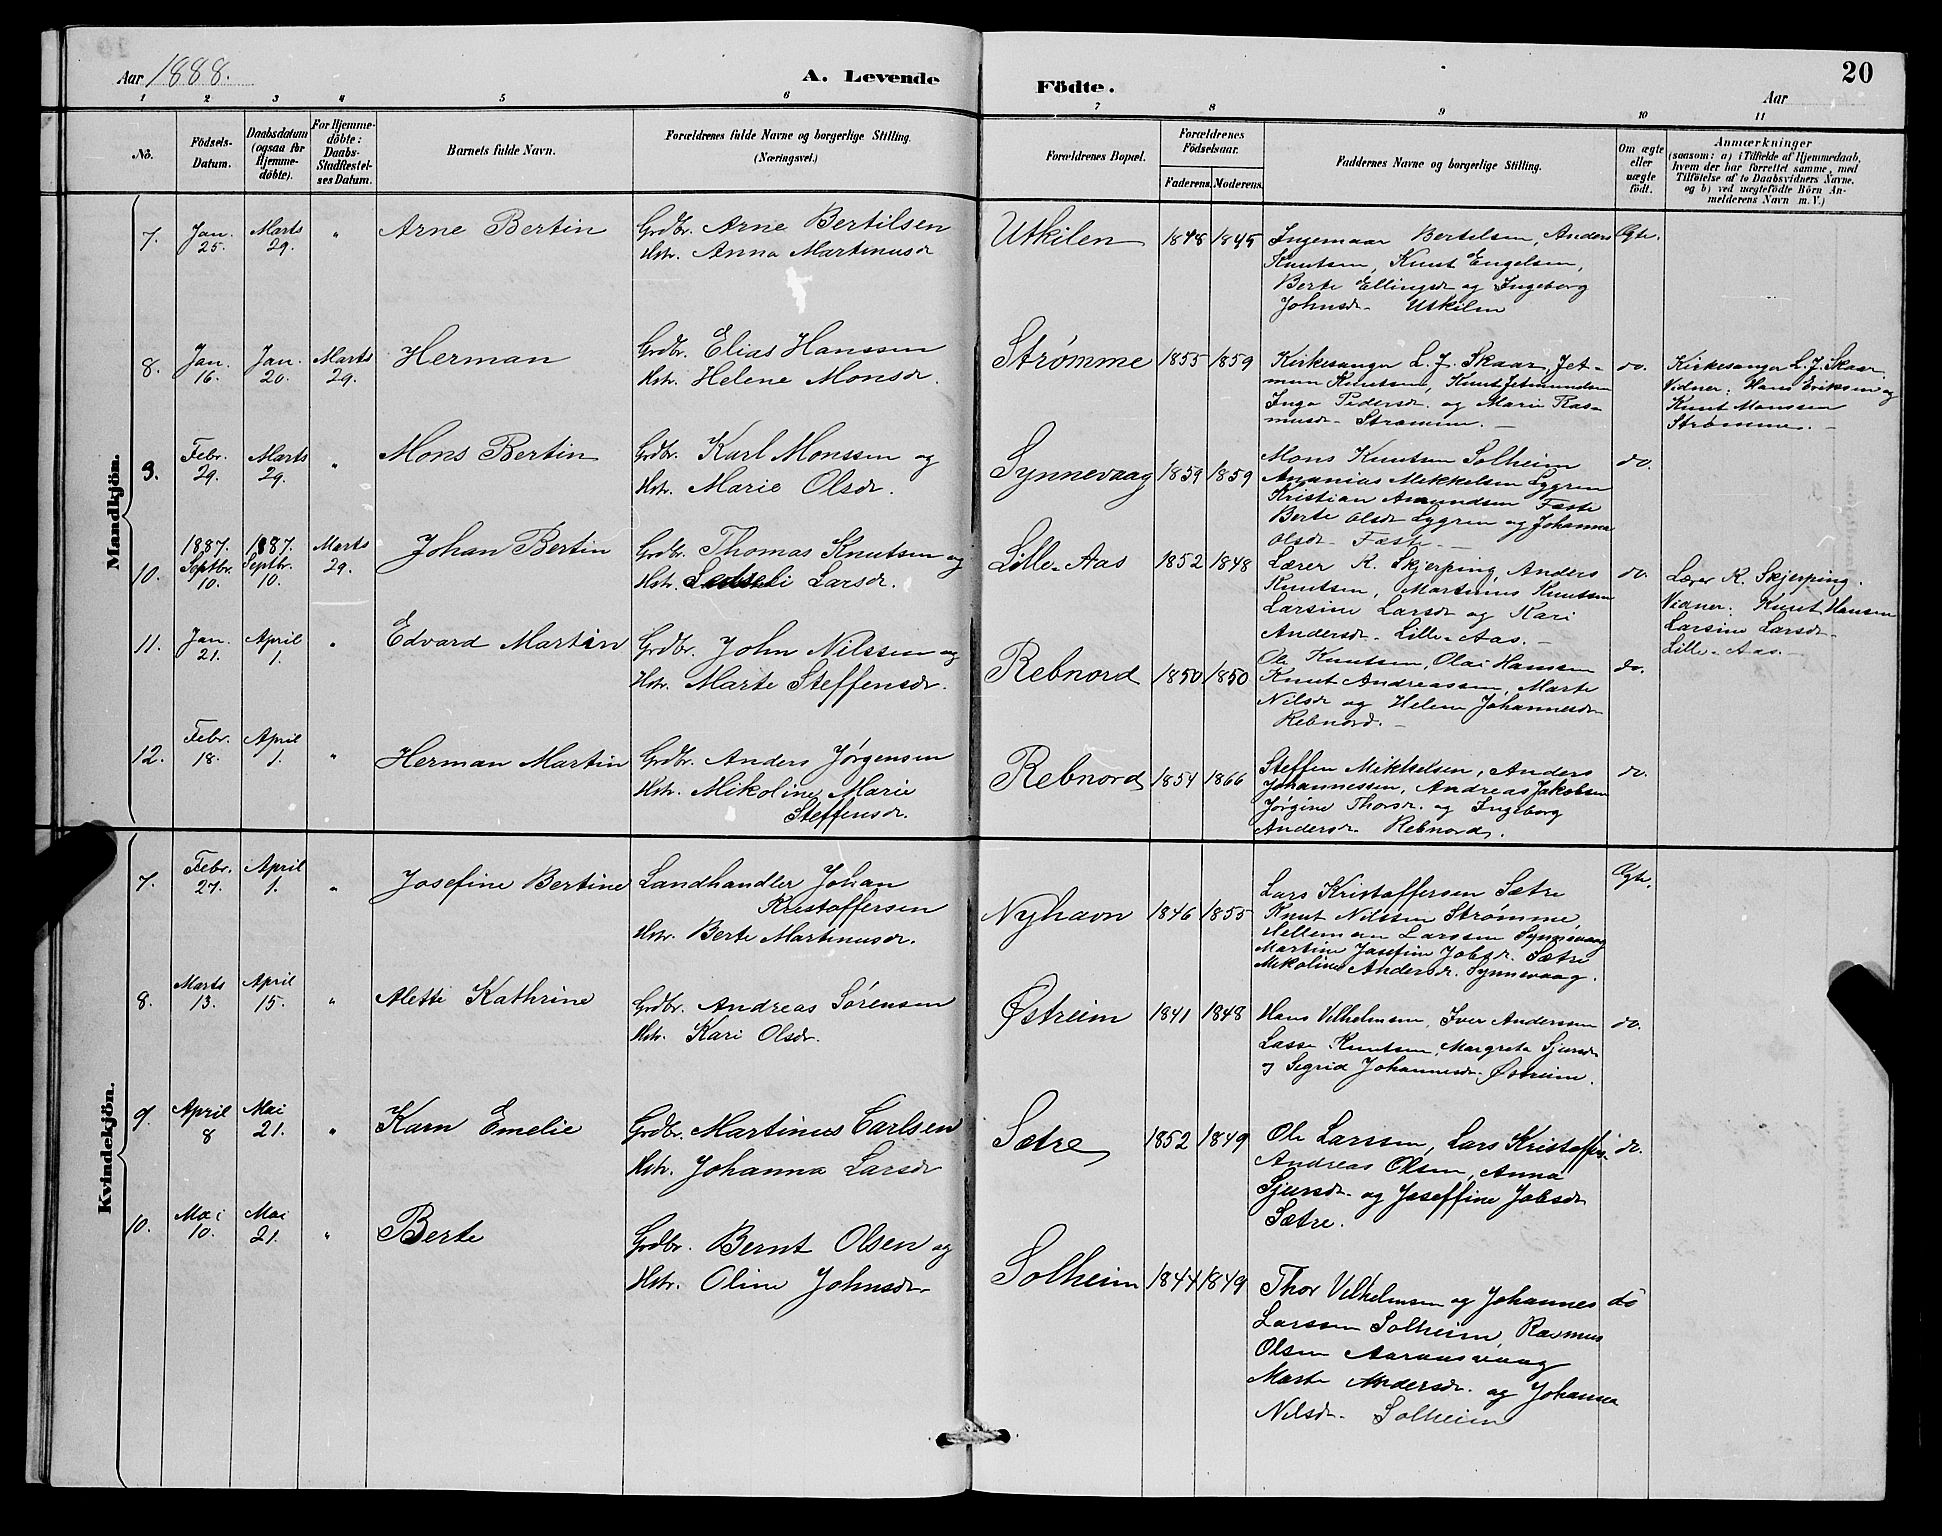 Aar 1888.
A. Levende
Födte.
Aar
20
1 2 3 4 5 6 7 8 9 10 11
No.
Födsels-Datum.
Daabsdatum (ogsaa for Hjemme-döbte).
For Hjemme-döbte: Daabs-Stadfæstel-ses Datum.
Barnets fulde Navn.
Forældrenes fulde Navne og borgerlige Stilling.
(Næringsvei.)
Forældrenes Bopæl.
Forældrenes Födselsaar.
Faderens. Moderens.
Faddernes Navne og borgerlige Stilling.
Om ægte eller uægte födt.
Anmærkninger
(saasom: a) i Tilfælde af Hjemmedaab,
hvem der har forrettet samme, med
Tilföielse af to Daabsvidners Navne,
og b) ved uægtefödte Börn An-
melderens Navn m. V.)
Mandkjön.
7. Jan. 25. Marts 29. " Arne Bertin
Grdbr. Arne Bertilsen
Hstr. Anna Martinusdr
Utkilen 1848 1845
Ingemaar Bertelsen, Anders
Knutsen, Knut Engelsen,
Berte Ellingsdr og Ingeborg
Johnsdr Utkilen
Ægte.
8. Jan. 16. Jan. 20. Marts 29. Herman
Grdbr. Elias Hanssen
Hstr. Helene Monsdr.
Strømme 1855 1859
Kirkesanger L. J. Skaar, Jet-
mun Knutsen, Knut Jetmundsen
Inga Pedersdr. og Marie Ras-
musdr Strømme. —
do.
Kirkesanger L. J. Skaar
Vidner. Hans Eriksen og
Knut Monssen
Strømme. —
9. Febr. 29. Marts 29. " Mons Bertin
Grdbr. Karl Monssen og
Hstr. Marie Olsdr.
Synnevaag 1859 1859
Mons Knutsen Solheim
Ananias Mikkelsen Lygren
Kristian Amundsen Fæste
Berte Olsdr Lygren og Johanna
Olsdr Fæste —
do.
10. 1887. Septbr. 10. 1887. Septbr. 10. Marts 29. Johan Bertin
Grdbr. Thomas Knutsen og
Hstr. Larsdr.
Lille-Aas 1852 1848
Lærer R. Skjerping, Anders
Knutsen, Martinus Knutsen
Larsine Larsdr og Kari
Andersdr. Lille-Aas. —
do.
Lærer R. Skjerping.
Vidner. Knut Hansen
Larsine Larsdr
Lille-Aas. —
11. Jan. 21. April 1. " Edvard Martin
Grdbr. John Nilssen og
Hstr. Marte Steffensdr.
Rebnord 1850 1850
Ole Knutsen, Olai Hanssen
Knut Andreassen, Marte
Nilsdr og Helene Johannesdr
Rebnord. —
do.
12. Febr. 18. April 1. " Herman Martin
Grdbr. Anders Jørgensen
Hstr. Mikoline Marie
Steffensdr.
Rebnord 1854 1866
Steffen Mikkelsen, Anders
Johannessen, Andreas Jakobsen
Jørgine Thorsdr. og Ingeborg
Andersdr Rebnord.
do.
Kvindekjön.
7. Febr. 27. April 1. " Josefine Bertine
Landhandler Johan
Kristoffersen
Hstr. Berte Martinusdr.
Nyhavn 1846 1855
Lars Kristoffersen Sætre
Knut Nilssen Strømme
Larssen Synnevaag
Martine Josefine Jobsdr. Sætre
Mikoline Andersdr. Synnevaag.
Ægte.
8. Marts 13. April 15. " Alette Kathrine
Grdbr. Andreas Sørensen
Hstr. Kari Olsdr.
Østreim 1841 1848
Hans Vilhelmsen, Iver Anderssen
Lasse Knutsen, Margreta Sjursdr
og Sigrid Johannesdr. Østreim.
do.
9. April 8 Mai 21. " Karn Emelie
Grdbr. Martinus Carlsen
Hstr. Johanna Larsdr
Sætre 1852 1849
Ole Larssen, Lars Kristoffers.
Andreas Olsen, Anna
Sjursdr. og Joseffine Jobsdr
Sætre.
do.
10. Mai 10. Mai 21. " Berte
Grdbr. Bernt Olsen og
Hstr. Oline Johnsdr
Solheim 1844 1849
Thor Vilhelmsen og Johannes
Larssen Solheim, Rasmus
Olsen
Marte Andersdr. og Johanna
Nilsdr. Solheim
do